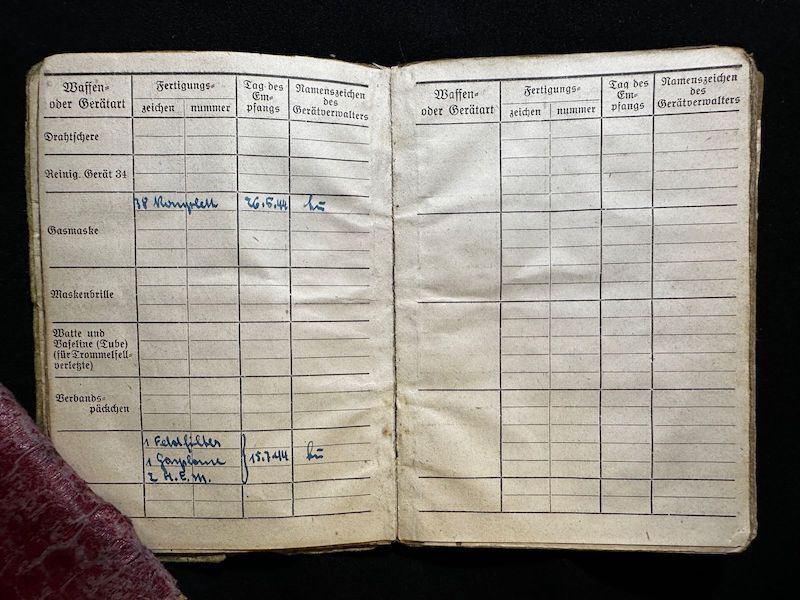 Waffen= oder Gerätart
Fertigungs=
zeichen nummer
Tag des Em= pfangs
Namenszeichen des Gerätverwalters
Drahtschere
Reinig. Gerät 34
38 Komplett 26.5.44
Gasmaske
Maskenbrille
Watte und
Vaseline (Tube)
(für Trommelfell=
verletzte)
Verbands=
päckchen
1 Feldfilter
1 Gasplane 15.7.44
2 H.E.M.
Waffen= oder Gerätart
Fertigungs=
zeichen nummer
Tag des Em= pfangs
Namenszeichen des Gerätverwalters